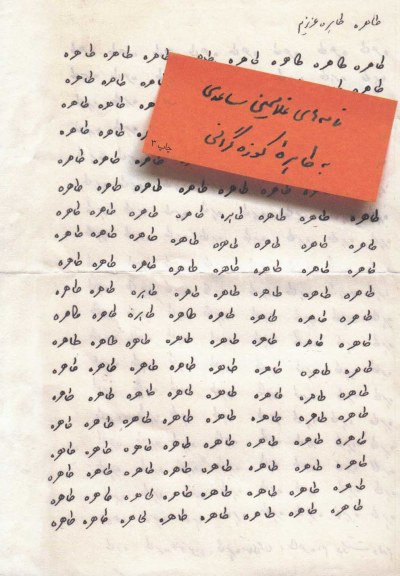 طاهره، طاهره عزیزم
طاهره طاهره طاهره طاهره طاهره طاهره طاهره طاهره
طاهره طاهره طاهره طاهره
طاهره طاهره
طاهره طاهره
نامه‌های غلامحسین ساعدی
به طاهره کوزه‌گرانی
چاپ ۳
طاهره طاهره
طاهره طاهره طاهره طاهره
طاهره طاهره طاهره طاهره طاهره طاهره طاهره طاهره
طاهره طاهره طاهره طاهره طاهره طاهره طاهره طاهره
طاهره طاهره طاهره طاهره طاهره طاهره طاهره طاهره
طاهره طاهره طاهره طاهره طاهره طاهره طاهره طاهره
طاهره طاهره طاهره طاهره طاهره طاهره طاهره طاهره
طاهره طاهره طاهره طاهره طاهره طاهره طاهره طاهره
طاهره طاهره طاهره طاهره طاهره طاهره طاهره طاهره
طاهره طاهره طاهره طاهره طاهره طاهره طاهره طاهره
طاهره طاهره طاهره طاهره طاهره طاهره طاهره طاهره
طاهره طاهره طاهره طاهره طاهره طاهره طاهره طاهره
طاهره طاهره طاهره طاهره طاهره طاهره طاهره طاهره
طاهره طاهره طاهره طاهره طاهره طاهره طاهره طاهره
طاهره طاهره طاهره طاهره طاهره طاهره طاهره طاهره